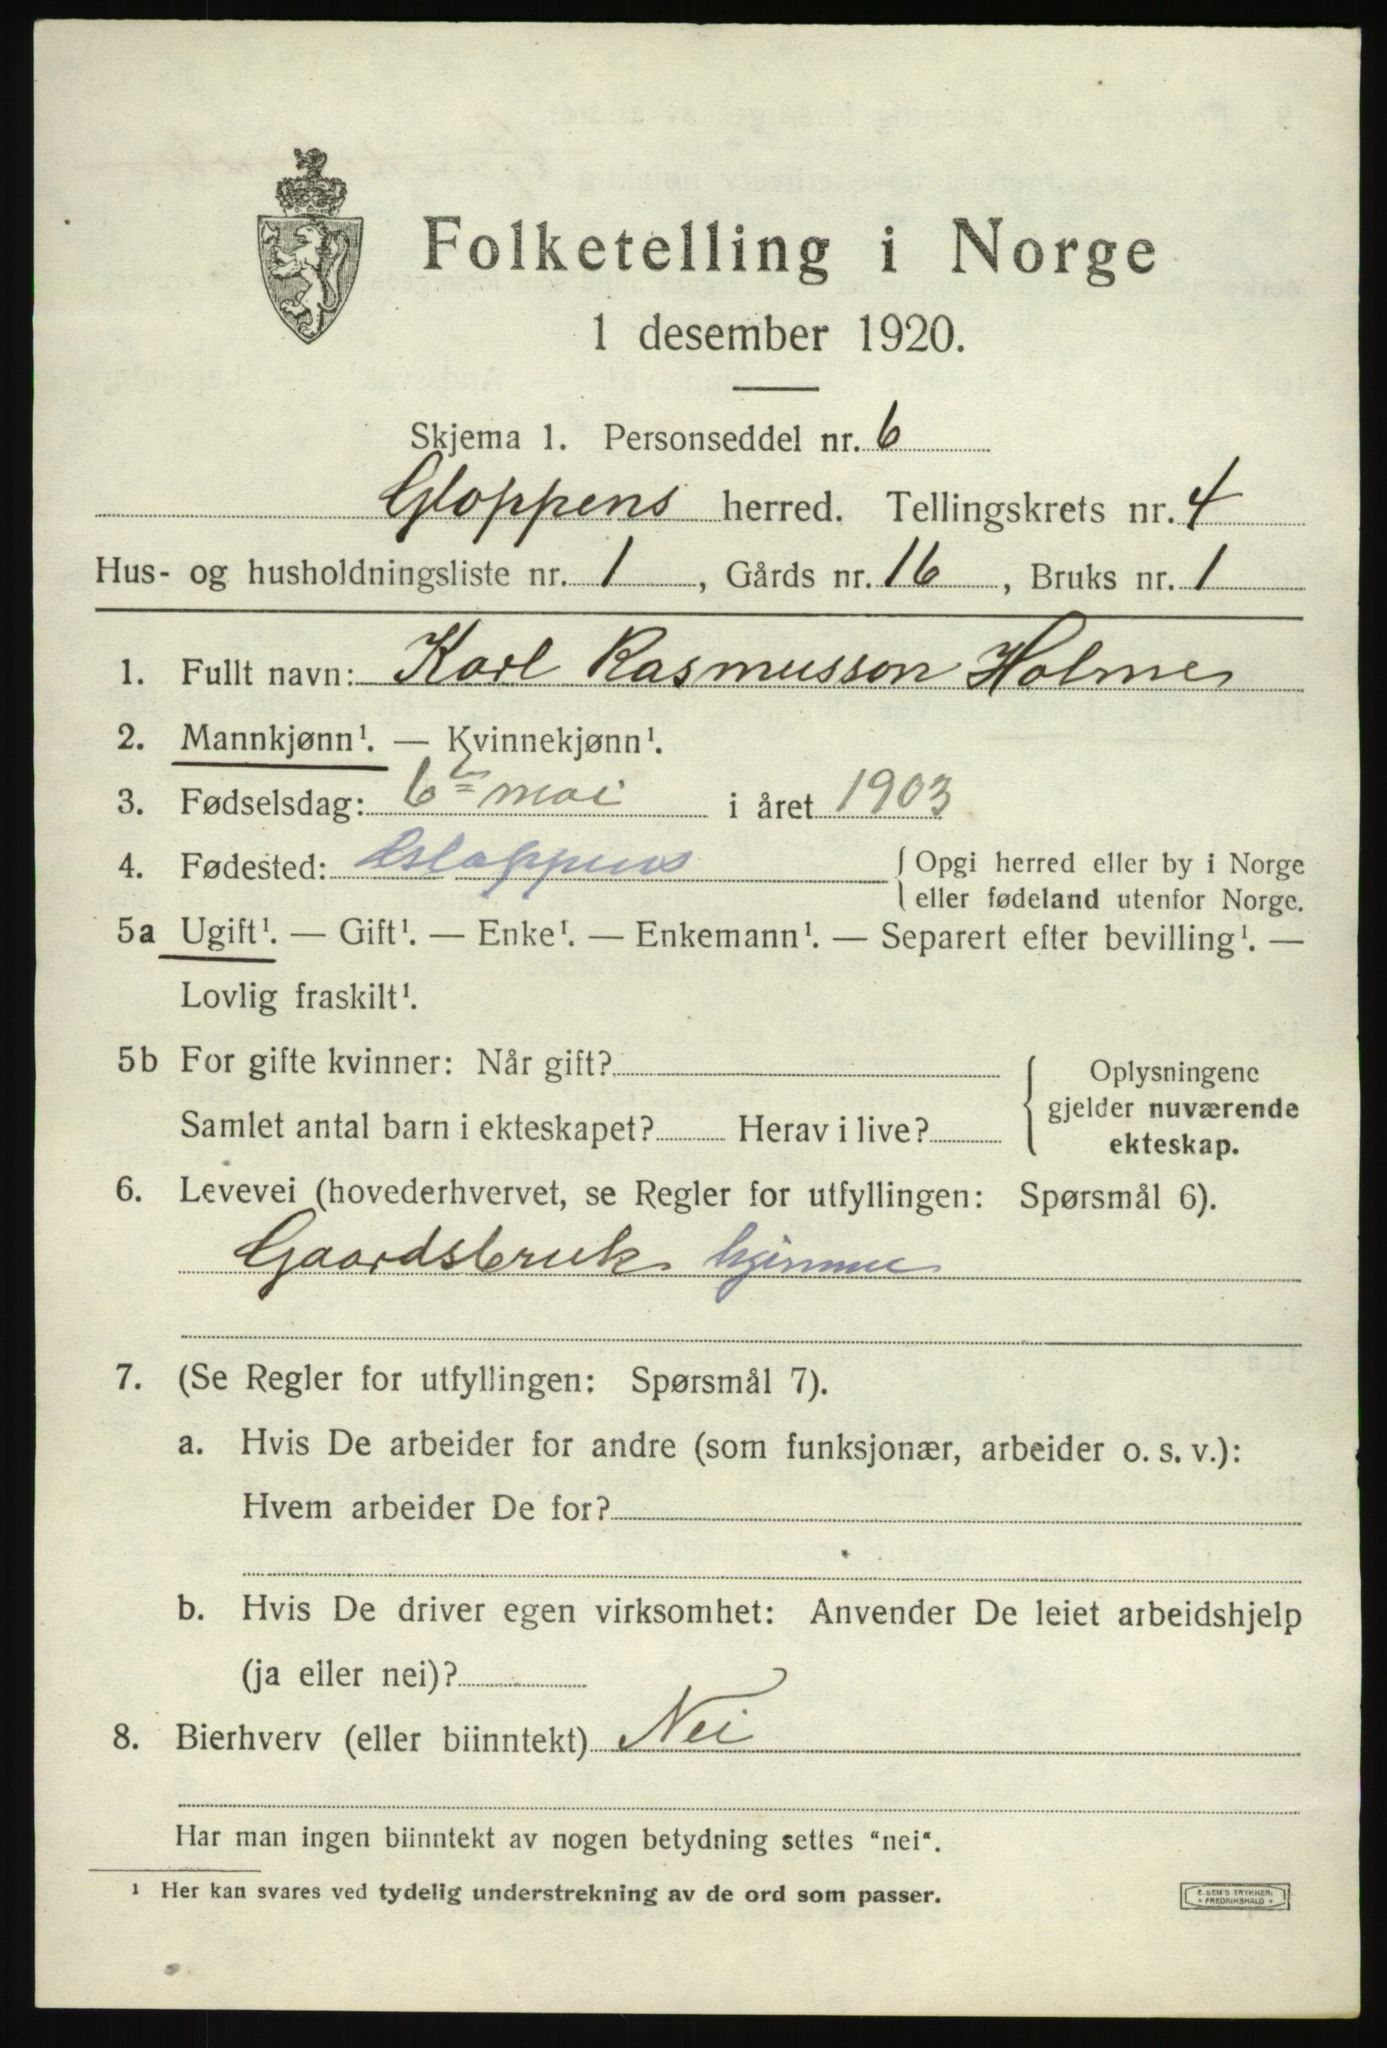 Folketelling i Norge
1 desember 1920.
Skjema 1. Personseddel nr. 6
Gloppens herred. Tellingskrets nr. 4
Hus- og husholdningsliste nr. 1, Gårds nr. 16, Bruks nr. 1
1. Fullt navn: Karl Rasmusson Holme
2. Mannkjønn¹. — Kvinnekjønn¹.
3. Fødselsdag: 6te mai i året 1903
4. Fødested: Gloppens { Opgi herred eller by i Norge
eller fødeland utenfor Norge.
5a Ugift¹. — Gift¹. — Enke¹. — Enkemann¹. — Separert efter bevilling¹. —
Lovlig fraskilt¹.
5b For gifte kvinner: Når gift?
Samlet antal barn i ekteskapet? Herav i live?
{ Oplysningene
gjelder nuværende
ekteskap.
6. Levevei (hovederhvervet, se Regler for utfyllingen: Spørsmål 6).
Gaardsbruk hjemme
7. (Se Regler for utfyllingen: Spørsmål 7).
a. Hvis De arbeider for andre (som funksjonær, arbeider o. s. v.):
Hvem arbeider De for?
b. Hvis De driver egen virksomhet: Anvender De leiet arbeidshjelp
(ja eller nei)?
8. Bierhverv (eller biinntekt) Nei
Har man ingen biinntekt av nogen betydning settes "nei".
¹ Her kan svares ved tydelig understrekning av de ord som passer.
E. SEM'S TRYKKERI
FREDRIKSHALD